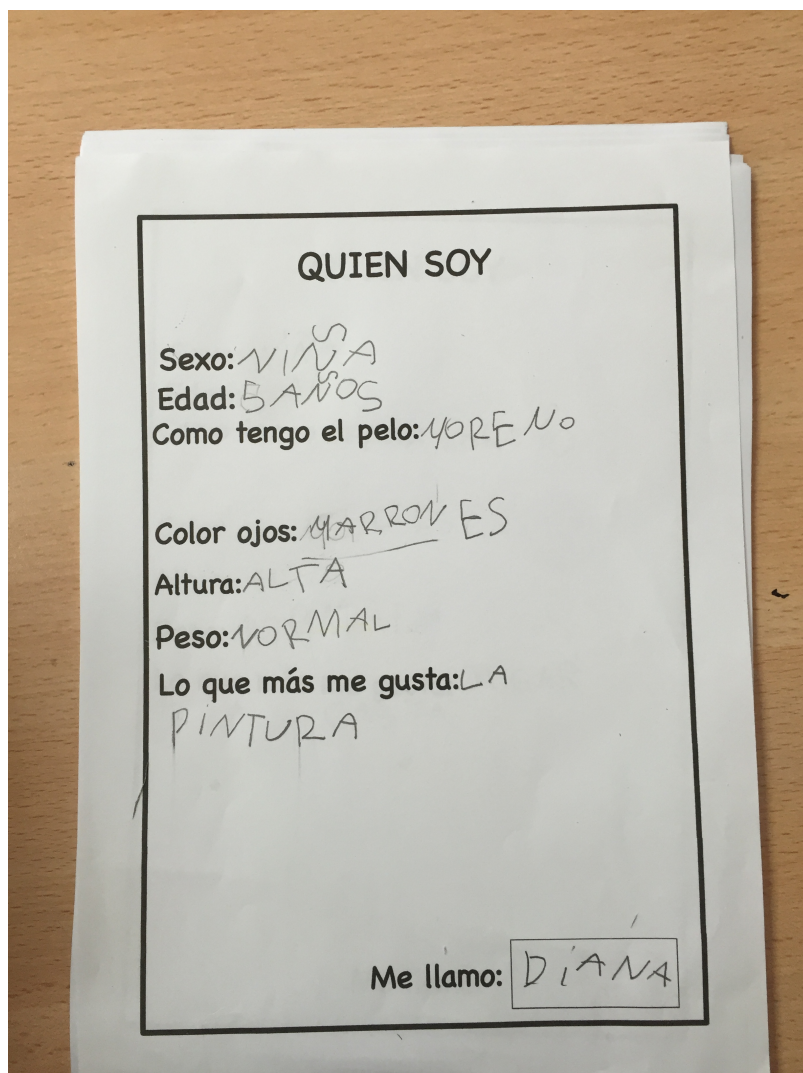 QUIEN SOY
Sexo: NIÑA
Edad: 5 AÑOS
Como tengo el pelo: MORENO
Color ojos: MARRONES
Altura: ALTA
Peso: NORMAL
Lo que más me gusta: LA
PINTURA
Me llamo: DIANA